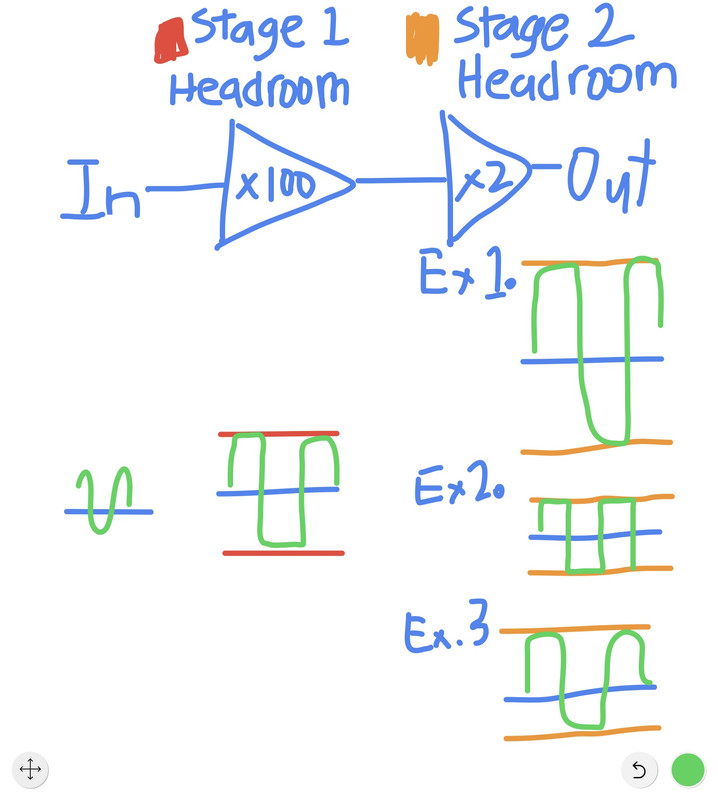 Stage 1
Headroom
Stage 2
Headroom
In
x100
x2
Out
Ex1.
Ex2.
Ex.3